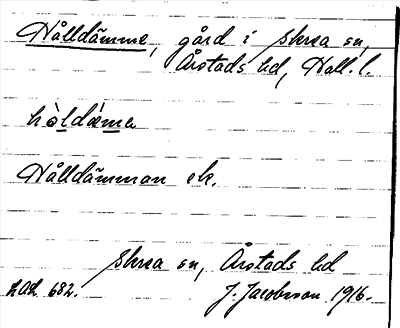 Hålldämme, gård i Skrea sn,
Årstads hd, Hall. l.
hòldǽma
Hålldämman ek.
Skrea sn, Årstads hd
LAL 682. J. Jacobsson 1916.